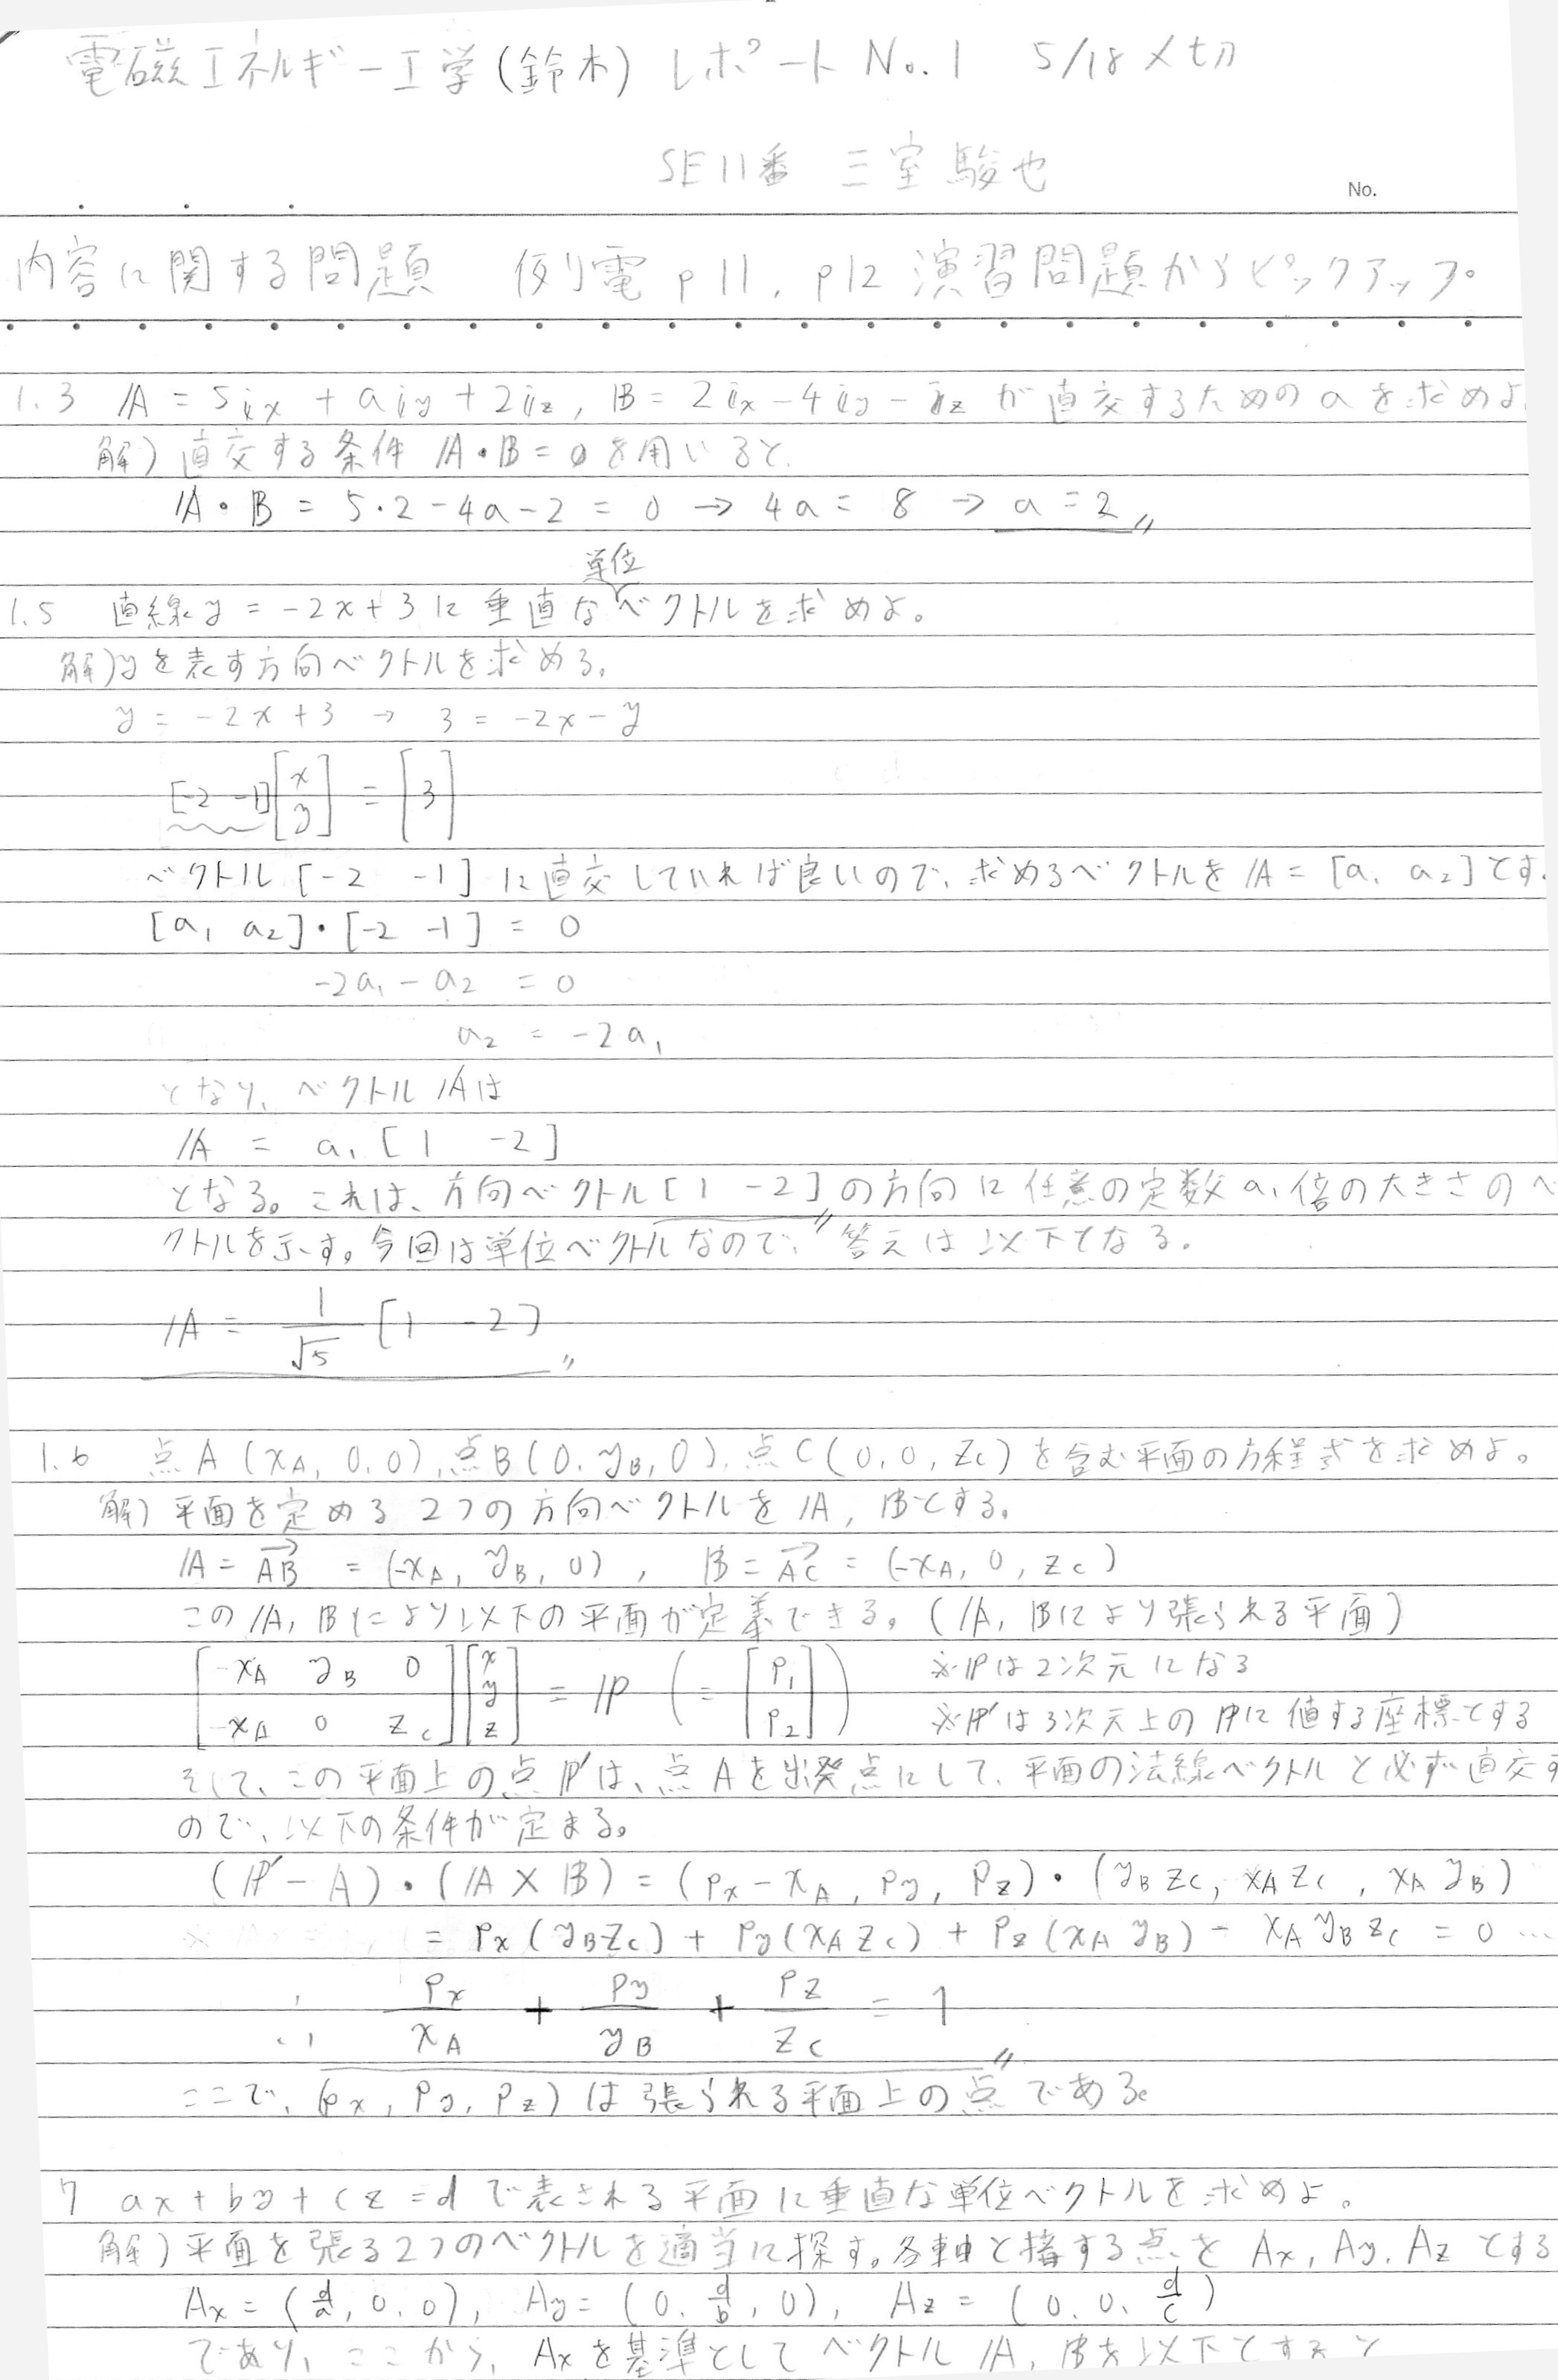 電磁エネルギー工学(鈴木) レポート No.1 5/18〆切
5E11番 三室 駿也
No.
内容に関する問題 例)電 p11, p12 演習問題からピックアップ。
1.3 𝔸 = 5𝕚x + a𝕚y + 2𝕚z, 𝔹 = 2𝕚x - 4𝕚y - 𝕚z が直交するための a を求めよ
解) 直交する条件 𝔸・𝔹 = 0 を用いると、
𝔸・𝔹 = 5・2 - 4a - 2 = 0 → 4a = 8 → a = 2 〃
単位
1.5 直線 y = -2x + 3 に垂直なベクトルを求めよ。
解) yを表す方向ベクトルを求める。
y = -2x + 3 → 3 = -2x - y
[-2 -1] [x y] = [3]
ベクトル [-2 -1] に直交していれば良いので、求めるベクトルを 𝔸 = [a₁ a₂] とす
[a₁ a₂]・[-2 -1] = 0
-2a₁ - a₂ = 0
a₂ = -2a₁
となり、ベクトル 𝔸 は
𝔸 = a₁ [1 -2]
となる。これは、方向ベクトル [1 -2] の方向に任意の定数 a₁ 倍の大きさのベ
クトルを示す。今回は単位ベクトルなので、答えは以下となる。
𝔸 = 1/√5 [1 -2] 〃
1.6 点A (xA, 0, 0), 点B (0, yB, 0), 点C (0, 0, zC) を含む平面の方程式を求めよ。
解) 平面を定める2つの方向ベクトルを 𝔸, 𝔹 とする。
𝔸 = AB→ = (-xA, yB, 0), 𝔹 = AC→ = (-xA, 0, zC)
この 𝔸, 𝔹 により以下の平面が定義できる。(𝔸, 𝔹 により張られる平面)
[-xA yB 0 / -xA 0 zC] [x y z] = ℙ (= [p₁ p₂]) ※ℙは2次元になる
※ℙ'は3次元上のℙに値する座標とする
そして、この平面上の点 ℙ' は、点 A を出発点にして、平面の法線ベクトルと必ず直交す
ので、以下の条件が定まる。
(ℙ' - A)・(𝔸 × 𝔹) = (px - xA, py, pz)・(yB zC, xA zC, xA yB)
= px (yB zC) + py (xA zC) + pz (xA yB) - xA yB zC = 0 …
∴ px/xA + py/yB + pz/zC = 1 〃
ここで、(px, py, pz) は張られる平面上の点である。
7 ax + by + cz = d で表される平面に垂直な単位ベクトルを求めよ。
解) 平面を張る2つのベクトルを適当に探す。各軸と接する点を Ax, Ay, Az とする
Ax = (d/a, 0, 0), Ay = (0, d/b, 0), Az = (0, 0, d/c)
であり、ここから、Ax を基準としてベクトル 𝔸, 𝔹 を以下とすると